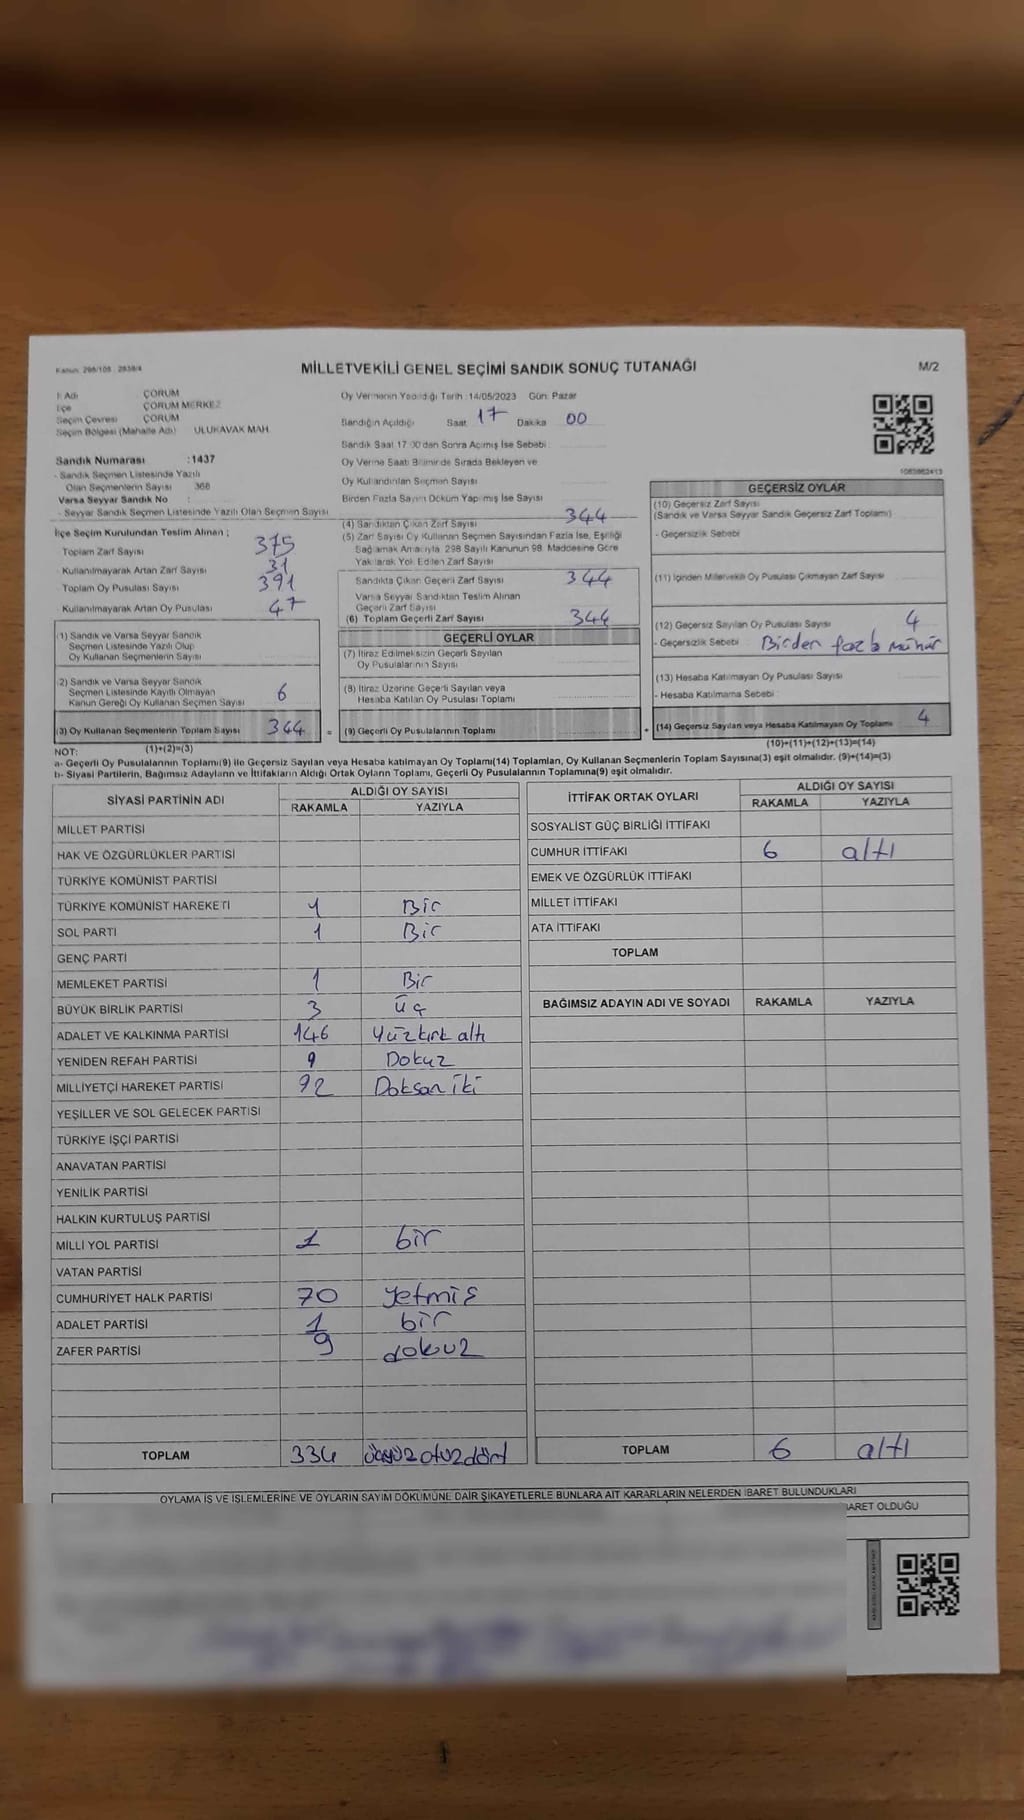 Kanun: 298/105 - 2839/4
MİLLETVEKİLİ GENEL SEÇİMİ SANDIK SONUÇ TUTANAĞI
M/2
İl Adı ÇORUM
İlçe ÇORUM MERKEZ
Seçim Çevresi ÇORUM
Seçim Bölgesi (Mahalle Adı) ULUKAVAK MAH.
Sandık Numarası :1437
- Sandık Seçmen Listesinde Yazılı
Olan Seçmenlerin Sayısı 368
Varsa Seyyar Sandık No :
- Seyyar Sandık Seçmen Listesinde Yazılı Olan Seçmen Sayısı
İlçe Seçim Kurulundan Teslim Alınan ;
Toplam Zarf Sayısı 375
- Kullanılmayarak Artan Zarf Sayısı 31
Toplam Oy Pusulası Sayısı 391
- Kullanılmayarak Artan Oy Pusulası 47
(1) Sandık ve Varsa Seyyar Sandık
Seçmen Listesinde Yazılı Olup
Oy Kullanan Seçmenlerin Sayısı
(2) Sandık ve Varsa Seyyar Sandık
Seçmen Listesinde Kayıtlı Olmayan
Kanun Gereği Oy Kullanan Seçmen Sayısı 6
(3) Oy Kullanan Seçmenlerin Toplam Sayısı 344 =
(1)+(2)=(3)
Oy Vermenin Yapıldığı Tarih :14/05/2023 Gün: Pazar
Sandığın Açıldığı Saat 17 Dakika 00
Sandık Saat 17:00'den Sonra Açılmış İse Sebebi :
Oy Verme Saati Bitiminde Sırada Bekleyen ve
Oy Kullandırılan Seçmen Sayısı
Birden Fazla Sayım Döküm Yapılmış İse Sayısı
(4) Sandıktan Çıkan Zarf Sayısı 344
(5) Zarf Sayısı Oy Kullanan Seçmen Sayısından Fazla İse, Eşitliği
Sağlamak Amacıyla, 298 Sayılı Kanunun 98. Maddesine Göre
Yakılarak Yok Edilen Zarf Sayısı
Sandıkta Çıkan Geçerli Zarf Sayısı 344
Varsa Seyyar Sandıktan Teslim Alınan
Geçerli Zarf Sayısı
(6) Toplam Geçerli Zarf Sayısı 344
GEÇERLİ OYLAR
(7) İtiraz Edilmeksizin Geçerli Sayılan
Oy Pusulalarının Sayısı
(8) İtiraz Üzerine Geçerli Sayılan veya
Hesaba Katılan Oy Pusulası Toplamı
(9) Geçerli Oy Pusulalarının Toplamı +
1083862413
GEÇERSİZ OYLAR
(10) Geçersiz Zarf Sayısı
(Sandık ve Varsa Seyyar Sandık Geçersiz Zarf Toplamı)
- Geçersizlik Sebebi
(11) İçinden Milletvekili Oy Pusulası Çıkmayan Zarf Sayısı
(12) Geçersiz Sayılan Oy Pusulası Sayısı 4
- Geçersizlik Sebebi Birden fazla mühür
(13) Hesaba Katılmayan Oy Pusulası Sayısı
- Hesaba Katılmama Sebebi
(14) Geçersiz Sayılan veya Hesaba Katılmayan Oy Toplamı 4
(10)+(11)+(12)+(13)=(14)
NOT:
a- Geçerli Oy Pusulalarının Toplamı(9) ile Geçersiz Sayılan veya Hesaba katılmayan Oy Toplamı(14) Toplamları, Oy Kullanan Seçmenlerin Toplam Sayısına(3) eşit olmalıdır. (9)+(14)=(3)
b- Siyasi Partilerin, Bağımsız Adayların ve İttifakların Aldığı Ortak Oyların Toplamı, Geçerli Oy Pusulalarının Toplamına(9) eşit olmalıdır.
SİYASİ PARTİNİN ADI ALDIĞI OY SAYISI
RAKAMLA YAZIYLA
MİLLET PARTİSİ
HAK VE ÖZGÜRLÜKLER PARTİSİ
TÜRKİYE KOMÜNİST PARTİSİ
TÜRKİYE KOMÜNİST HAREKETİ 1 Bir
SOL PARTİ 1 Bir
GENÇ PARTİ
MEMLEKET PARTİSİ 1 Bir
BÜYÜK BİRLİK PARTİSİ 3 üç
ADALET VE KALKINMA PARTİSİ 146 Yüzkırk altı
YENİDEN REFAH PARTİSİ 9 Dokuz
MİLLİYETÇİ HAREKET PARTİSİ 92 Doksan iki
YEŞİLLER VE SOL GELECEK PARTİSİ
TÜRKİYE İŞÇİ PARTİSİ
ANAVATAN PARTİSİ
YENİLİK PARTİSİ
HALKIN KURTULUŞ PARTİSİ
MİLLİ YOL PARTİSİ 1 bir
VATAN PARTİSİ
CUMHURİYET HALK PARTİSİ 70 yetmiş
ADALET PARTİSİ 1 bir
ZAFER PARTİSİ 9 dokuz
TOPLAM 334 üçyüz otuz dört
İTTİFAK ORTAK OYLARI ALDIĞI OY SAYISI
RAKAMLA YAZIYLA
SOSYALİST GÜÇ BİRLİĞİ İTTİFAKI
CUMHUR İTTİFAKI 6 altı
EMEK VE ÖZGÜRLÜK İTTİFAKI
MİLLET İTTİFAKI
ATA İTTİFAKI
TOPLAM
BAĞIMSIZ ADAYIN ADI VE SOYADI RAKAMLA YAZIYLA
TOPLAM 6 altı
OYLAMA İŞ VE İŞLEMLERİNE VE OYLARIN SAYIM DÖKÜMÜNE DAİR ŞİKAYETLERLE BUNLARA AİT KARARLARIN NELERDEN İBARET BULUNDUKLARI
BARET OLDUĞU